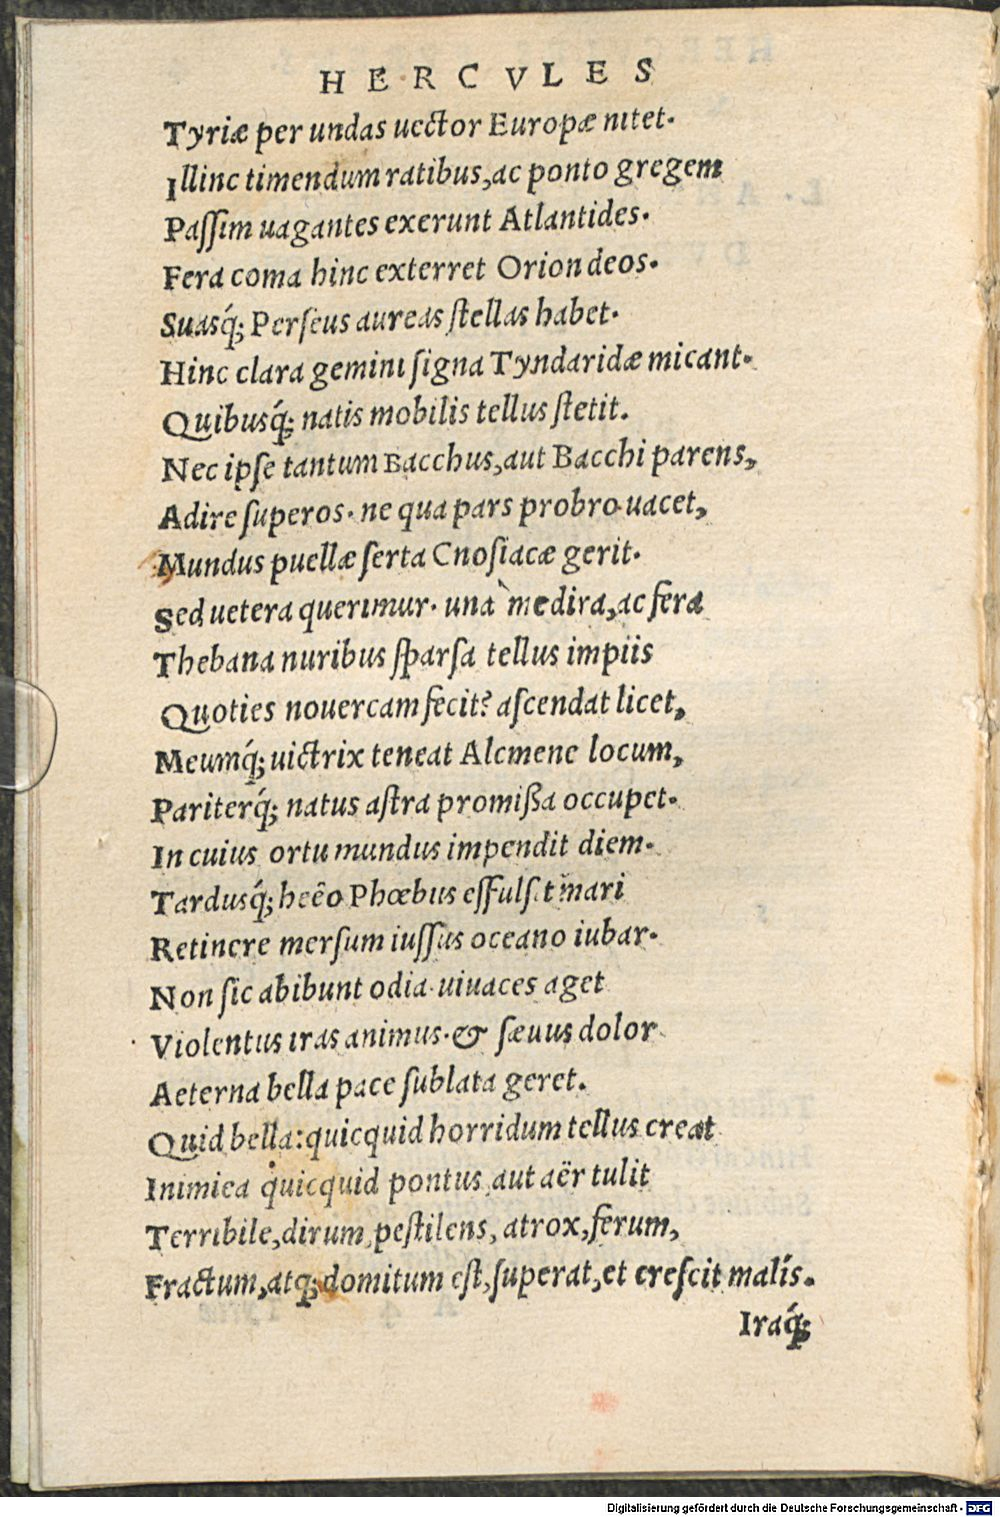 HERCVLES
Tyriæ per undas uector Europæ nitet.
Illinc timendum ratibus, ac ponto gregem
Paſſim uagantes exerunt Atlantides.
Fera coma hinc exterret Orion deos.
Suasq́; Perſeus aureas ſtellas habet.
Hinc clara gemini ſigna Tyndaridæ micant.
Quibusq́; natis mobilis tellus ſtetit.
Nec ipſe tantum Bacchus, aut Bacchi parens,
Adire ſuperos. ne qua pars probro uacet,
Mundus puellæ ſerta Cnoſiacæ gerit.
Sed uetera querimur. una me dira, ac fera
Thebana nuribus ſparſa tellus impiis
Quoties nouercam fecit? aſcendat licet,
Meumq́; uictrix teneat Alcmene locum,
Pariterq́; natus aſtra promißa occupet.
In cuius ortu mundus impendit diem.
Tardusq́; heêo Phœbus effulſit mari
Retinere merſum iuſſus oceano iubar.
Non ſic abibunt odia. uiuaces aget
Violentus iras animus. & ſæuus dolor
Aeterna bella pace ſublata geret.
Quid bella: quicquid horridum tellus creat
Inimica quicquid pontus, aut aër tulit
Terribile, dirum, peſtilens, atrox, ferum,
Fractum, atq; domitum eſt, ſuperat, et creſcit malis.
Iraq́;
Digitalisierung gefördert durch die Deutsche Forschungsgemeinschaft - DFG